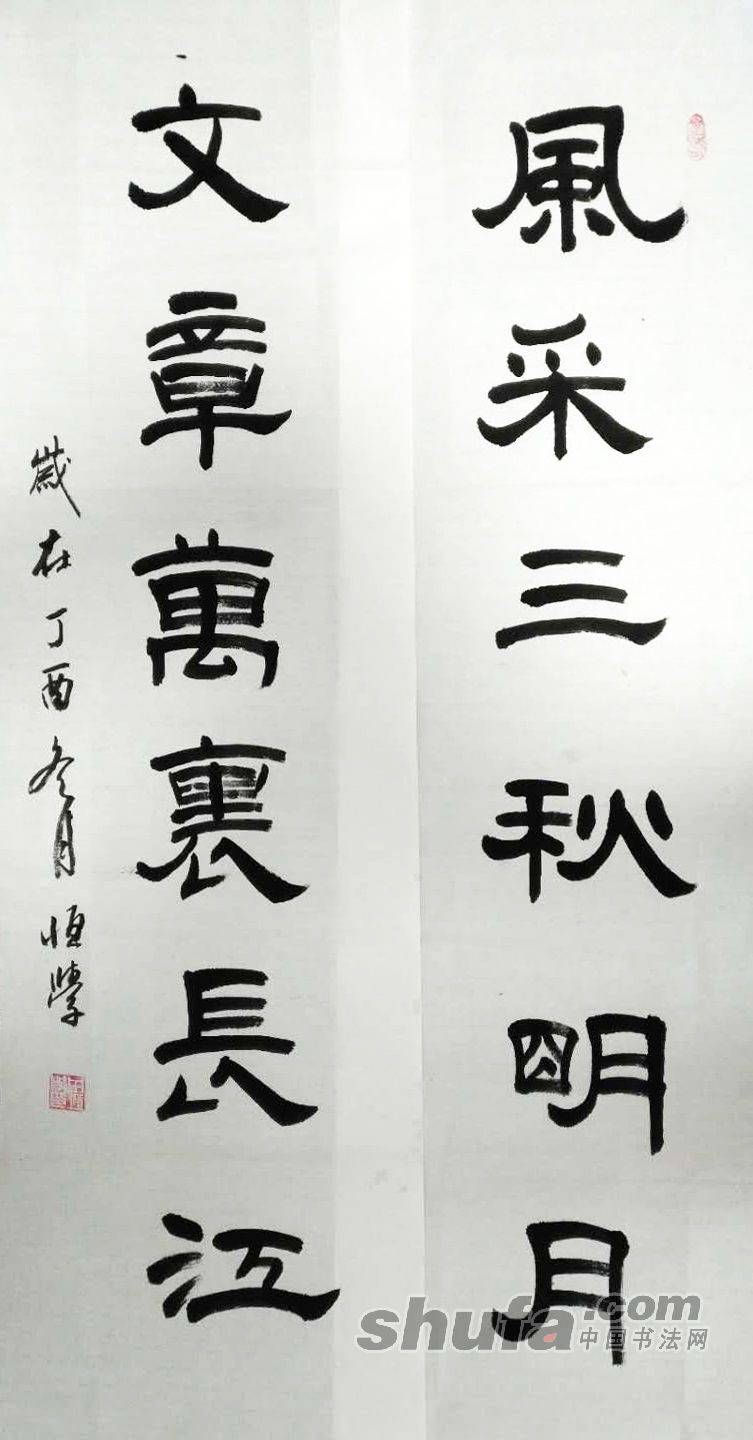 風采三秋明月
文章萬裏長江
歲在丁酉冬月恒學
shufa.com
中国书法网